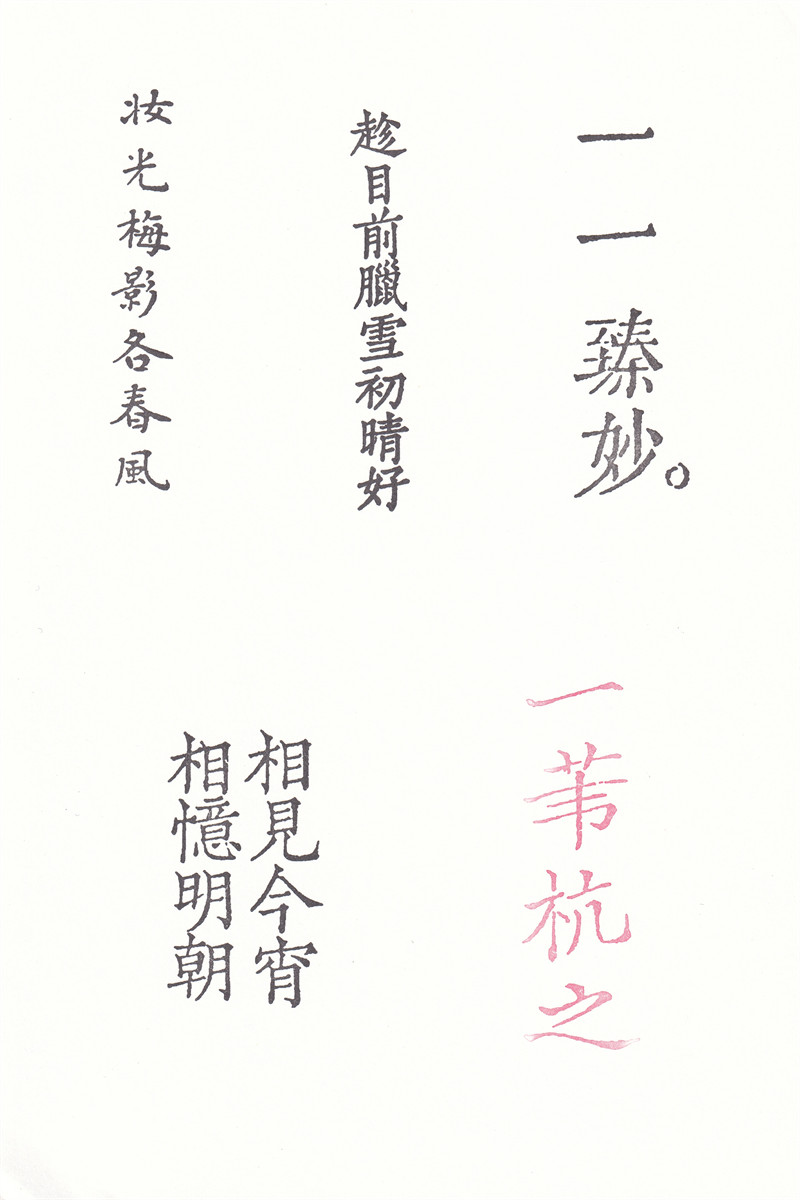 一一臻妙。
趁目前臘雪初晴好
妝光梅影各春風
一苇杭之
相見今宵
相憶明朝